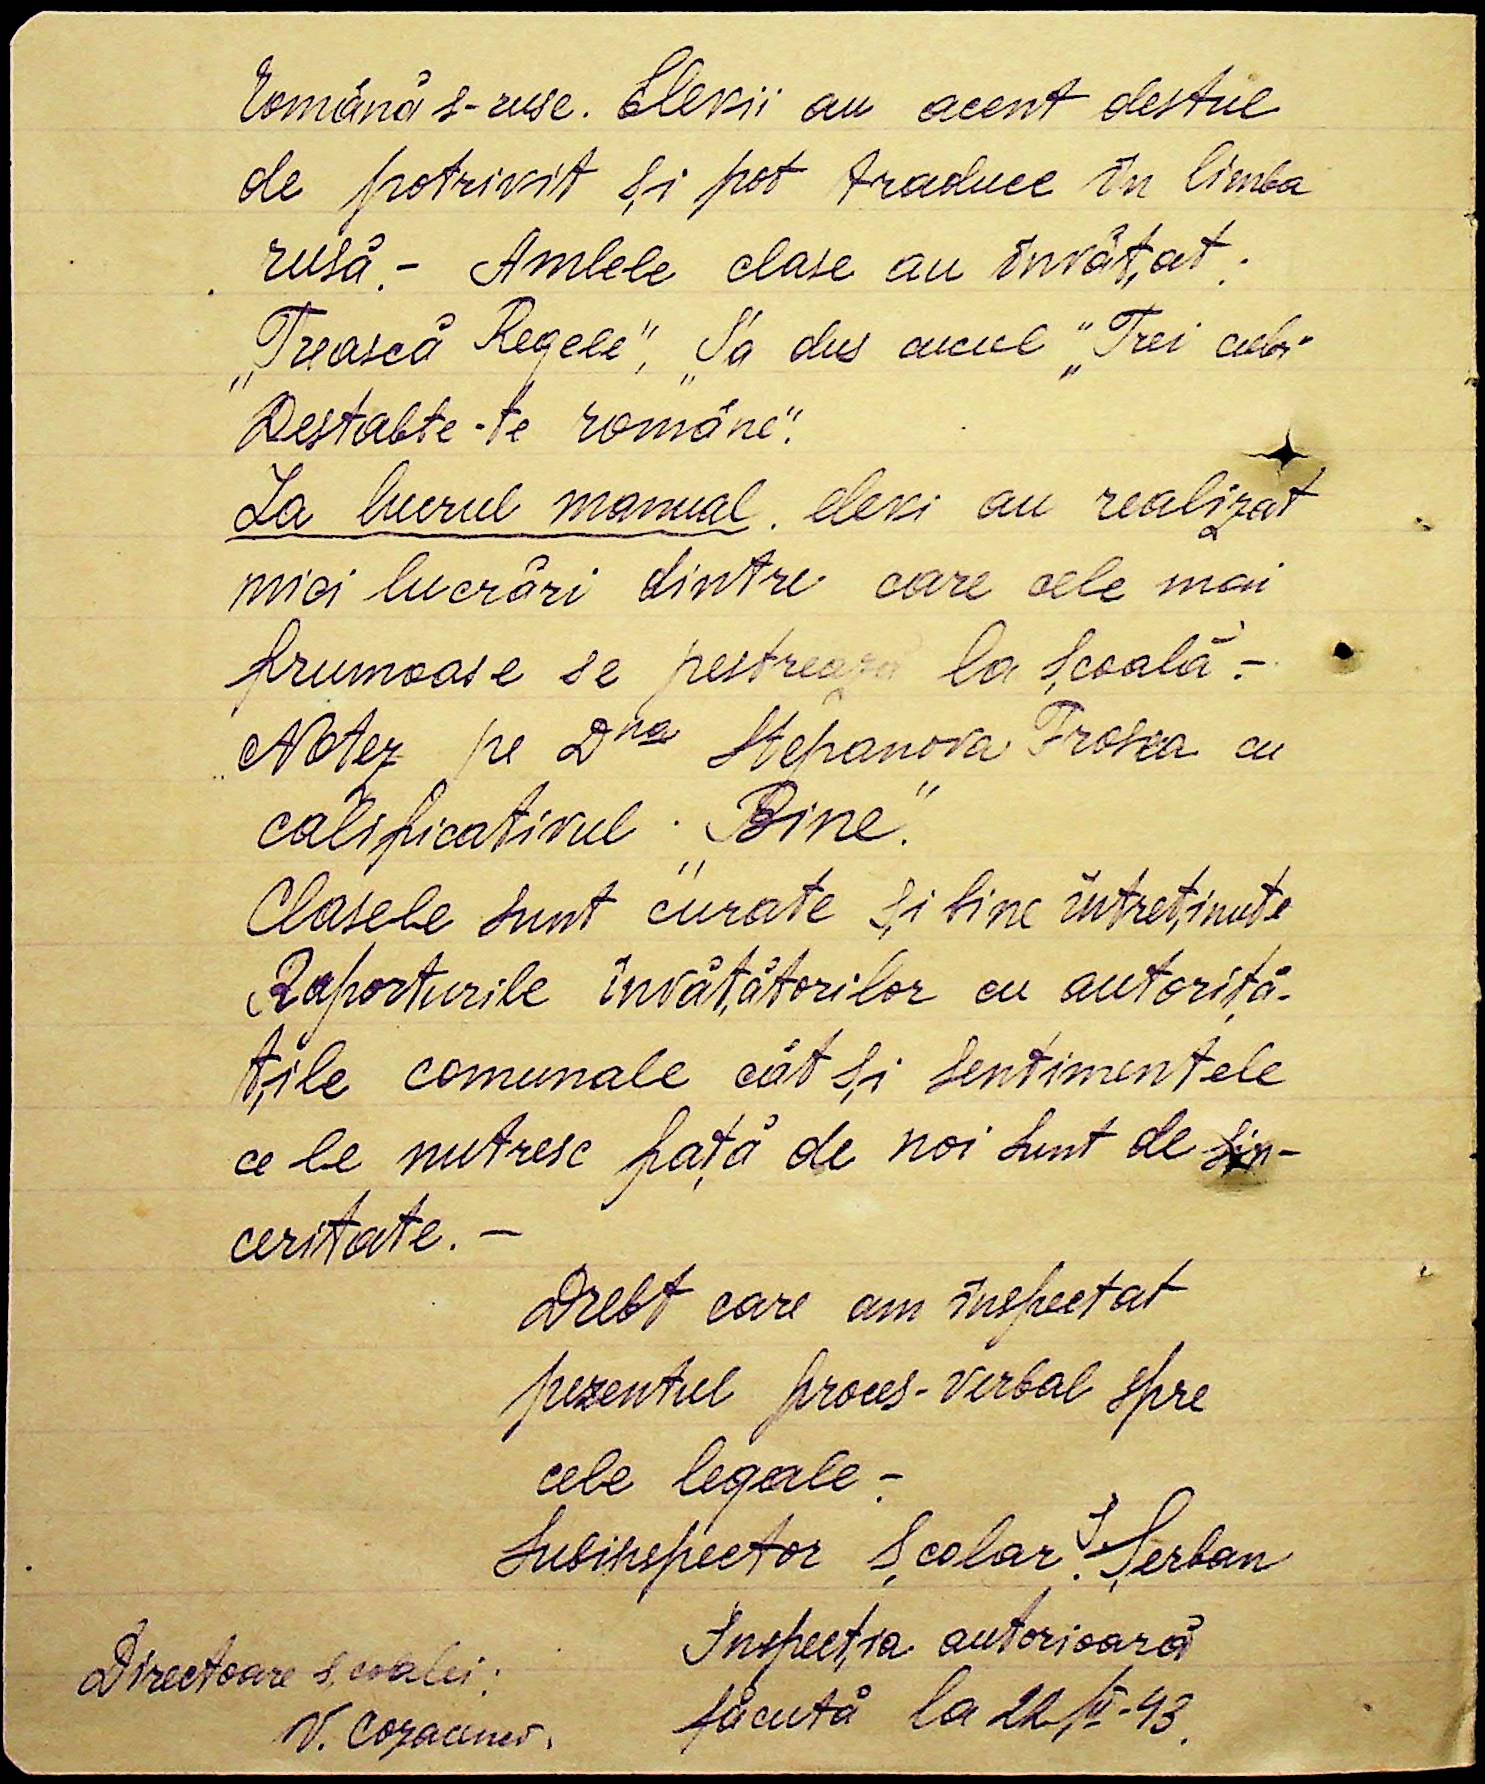 Română s-ruse. Elevii au acent destul
de potrivit și pot traduce în limba
rusă. - Amlele clase au învățat.
„Trească Regele", „Sa dus cucul" „Trei
Deștabte-te române".
La lucrul manual. elevi au realizat
mici lucrări dintre care cele mai
frumoase se pestrează la școală. -
Notez pe Dna Stepanova Frosea cu
calificativul „Bine".
Clasele sunt curate și bine întreținute
Raporturile învățătorilor cu autorită-
țile comunale cât și sentimentele
ce le nutresc față de noi sunt de sin-
ceritate. -
Drebt care am inspectat
pezentul proces-verbal spre
cele legale -
Subinspector Școlar. I. Șerban
Inspecția autorioară
făcută la 22/II-43.
Directoare școalei:
V.